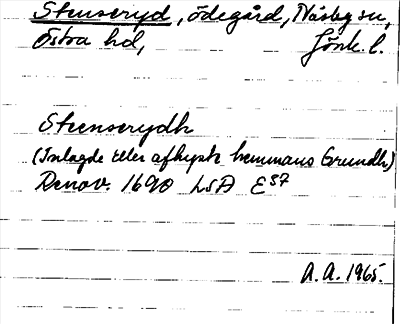 Stenseryd, ödegård, Näsby sn,
Östra hd, Jönk. l.
Steenserydh
(Inlagde eller afhyste hemmans Grundh)
Renov. 1690 LSA E37
A.A. 1965.